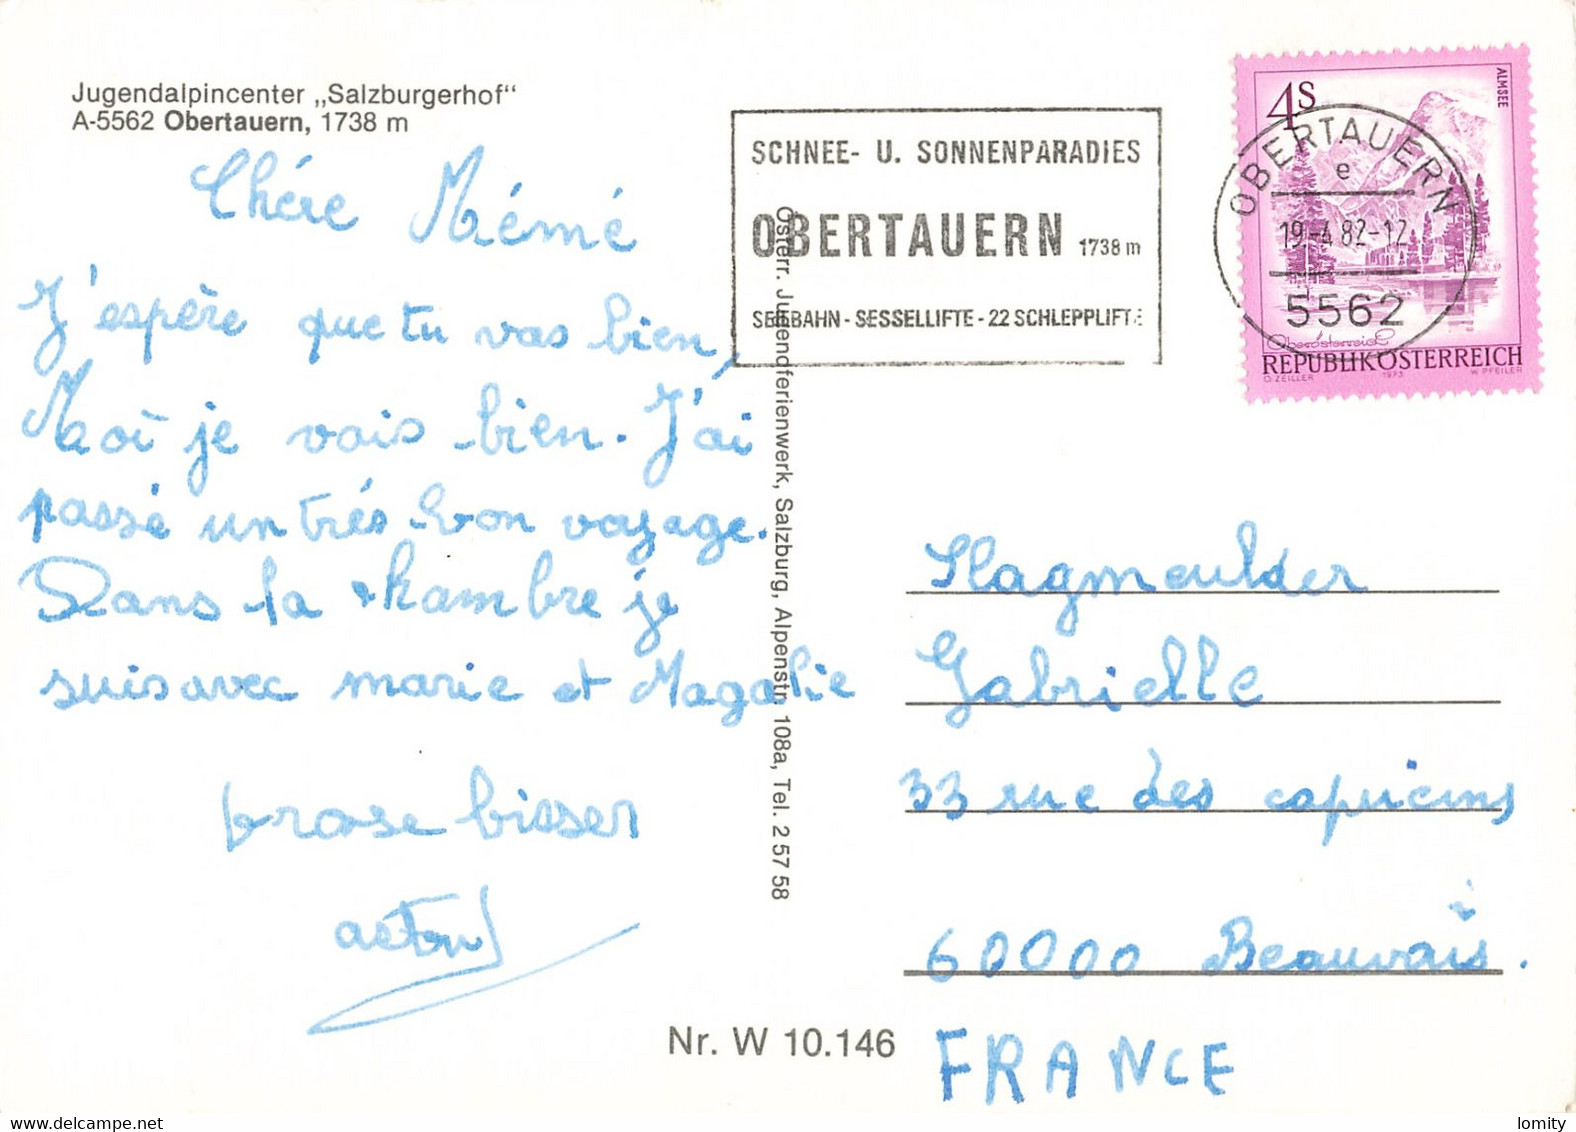 Jugendalpincenter „Salzburgerhof"
A-5562 Obertauern, 1738 m
Chére Mémé
J'espère que tu vas bien,
Moi je vais bien. J'ai
passé un trés bon voyage.
Dans la chambre je
suis avec marie et Magalie
grosse bisses
Österr. Jugendferienwerk, Salzburg, Alpenstr. 108a, Tel. 2 57 58
Nr. W 10.146
SCHNEE- U. SONNENPARADIES
OBERTAUERN 1738 m
SEEBAHN - SESSELLIFTE - 22 SCHLEPPLIFTE
4S
ALMSEE
OBERTAUERN
e
19.-4.82-12
5562
Oberösterreich
REPUBLIK ÖSTERREICH
O. ZEILLER 1973 W. PFEILER
Slagmeulder
Gabrielle
33 rue des capucins
60000 Beauvais.
FRANCE
www.delcampe.net
lomity